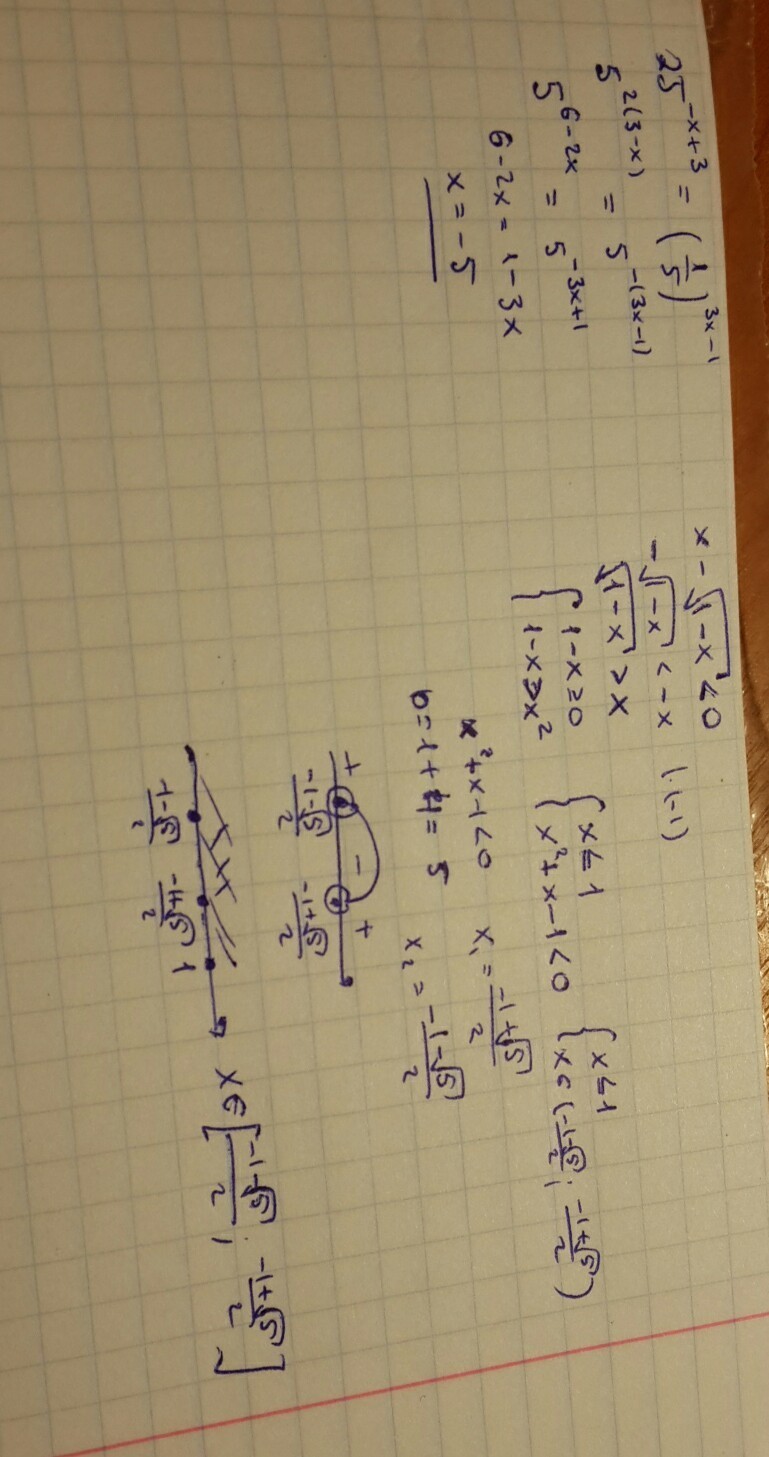 25^{-x+3} = (1/5)^{3x-1}
5^{2(3-x)} = 5^{-(3x-1)}
5^{6-2x} = 5^{-3x+1}
6-2x = 1-3x
x = -5
x - √(1-x) < 0
-√(1-x) < -x |·(-1)
√(1-x) > x
{ 1-x ≥ 0 { x ≤ 1 { x ≤ 1
{ 1-x > x² { x²+x-1<0 { x ∈ ((-1-√5)/2 ; (-1+√5)/2)
x²+x-1<0 x₁ = (-1+√5)/2
D = 1+4 = 5 x₂ = (-1-√5)/2
+ - +
(-1-√5)/2 (-1+√5)/2
(-1-√5)/2 (-1+√5)/2 1
x ∈ [(-1-√5)/2 ; (-1+√5)/2]